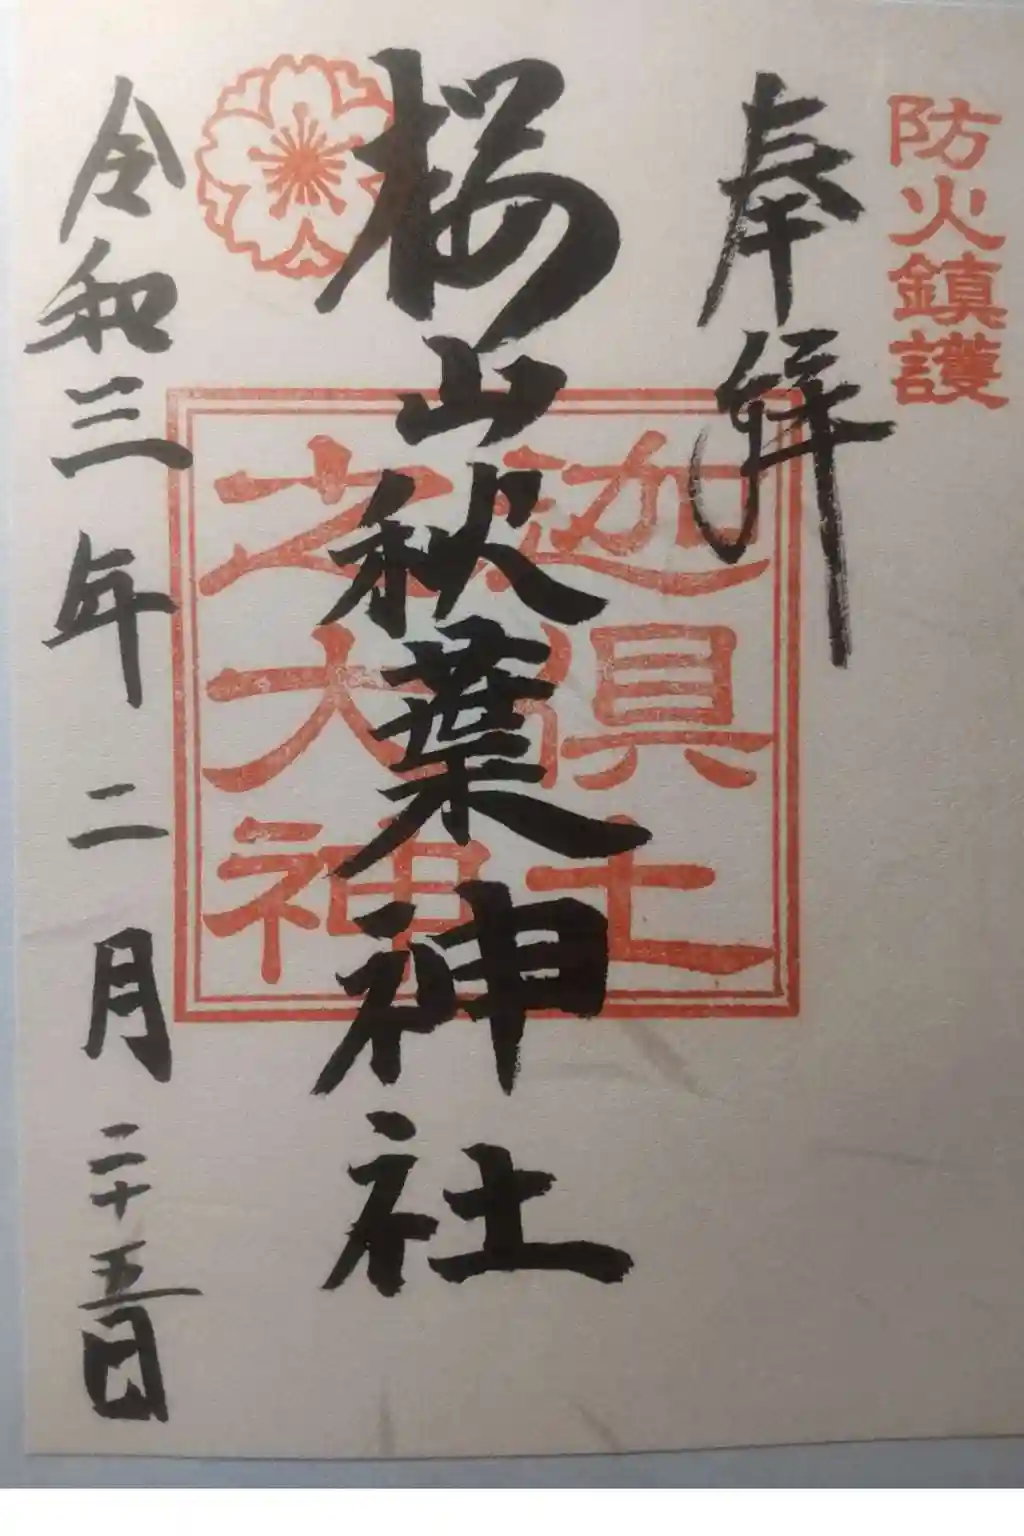 防火鎮護
奉拝
桜山秋葉神社
迦具土
之大神
令和三年二月二十五日